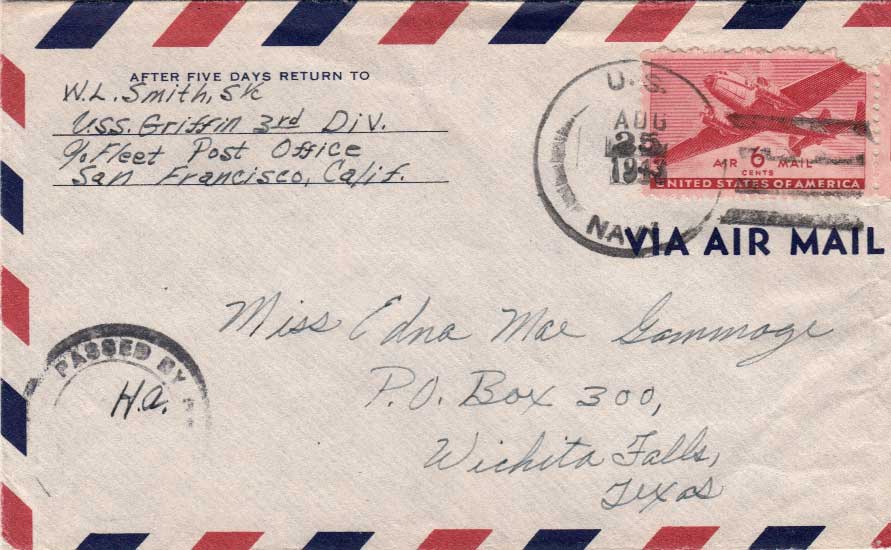 AFTER FIVE DAYS RETURN TO
W.L. Smith, SK
U.S.S. Griffin 3rd Div.
c/o Fleet Post Office
San Francisco, Calif.
U.S.
AUG
25
1943
NAVY
AIR 6 MAIL
CENTS
UNITED STATES OF AMERICA
VIA AIR MAIL
Miss Edna Mae Gammage
P.O. Box 300,
Wichita Falls,
Texas
PASSED BY
H.A.